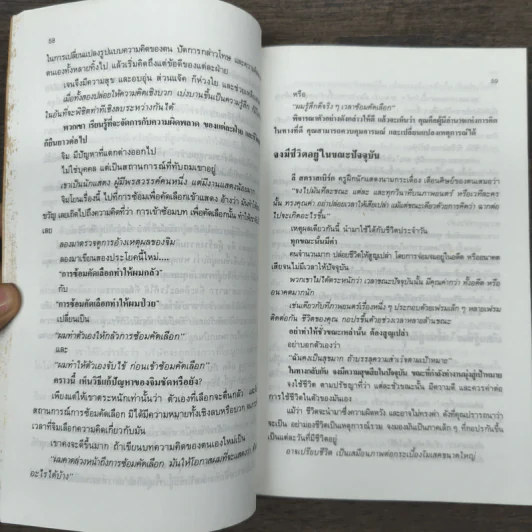 58
ในการเปลี่ยนแปลงรูปแบบความคิดของตน ปัดการกล่าวโทษ
ตนเองทั้งหลายทิ้งไป แล้วเริ่มคิดถึงแต่ข้อดีของแต่ละฝ่าย
เจนจึงมีความสุข และอบอุ่น ส่วนแจ๊ค ก็ห่วงใย
เมื่อทั้งสองปล่อยให้ความคิดเชิงบวก เบ่งบานขึ้นเป็นความรู้สึก
ในอันที่จะพิชิตท่าทีเชิงลบระหว่างกันได้
พวกเขา เรียนรู้ที่จะจัดการกับความผิดพลาด ของแต่ละฝ่าย
ดีอันยาวต่อไป
จิม มีปัญหาที่แตกต่างออกไป
ไม่ใช่บุคคล แต่เป็นสถานการณ์ที่ทับถมเขาอยู่
เขาเป็นนักแสดง ผู้มีพรสวรรค์คนหนึ่ง แต่มีงานแสดงน้อยมาก
จิมโยนเรื่องนี้ ไปที่การซ้อมเพื่อคัดเลือกเข้าแสดง อ้างว่า
ขวัญ เลยเถิดไปถึงความคิดที่ว่า การเข้าซ้อมบท เพื่อคัดเลือกนั้น
อยู่
ลองมาตรวจดูการอ้างเหตุผลของจิม
ลองมาเขียนสองประโยคนี้ใหม่....
"การซ้อมคัดเลือกทำให้ผมกลัว"
กับ
"การซ้อมคัดเลือกทำให้ผมป่วย"
เปลี่ยนเป็น
"ผมทำตัวเองให้กลัวการซ้อมคัดเลือก"
และ
"ผมทำให้ตัวเองจับไข้ ก่อนเข้าซ้อมคัดเลือก"
คราวนี้ เห็นวิธีแก้ปัญหาของจิมชัดหรือยัง?
เพียงแต่ให้เขาตระหนักเท่านั้นว่า ตัวเองที่เลือกจะตื่นกลัว และ
สถานการณ์การซ้อมคัดเลือก มิได้มีความหมายทั้งเชิงลบหรือบวก
เวลาที่จิมเลือกความคิดเกี่ยวกับมัน
เขาคงจะดีขึ้นมาก ถ้าเขียนบทความคิดของตนเองใหม่เป็น
"ผมคาดล่วงหน้าถึงการซ้อมคัดเลือก มันให้โอกาสผมที่จะแสดง
อะไรได้บ้าง"
59
หรือ
"ผมรู้สึกดีจริง ๆ เวลาซ้อมคัดเลือก"
พิจารณาตัวอย่างดังกล่าวให้ดี แล้วจะเห็นว่า คุณคือผู้มีอำนาจแห่งการคิด
ในทางที่ดี คุณสามารถควบคุมอารมณ์ และเปลี่ยนแปลงเหตุการณ์ได้
จงมีชีวิตอยู่ในขณะปัจจุบัน
ลี สตราสเบิร์ก ครูฝึกนักแสดงนามกระเดื่อง เตือนศิษย์ของตนเสมอว่า
"จงไปมันทีละขณะ แต่ละ และทุกวินาทีบนภาพยนตร์ หรือเวทีละคร
นั้น ทรงคุณค่า อย่าปล่อยเวลาให้เสียเปล่า แม้แต่ขณะเดียวด้วยการคิดว่า ฉากต่อ
ไปจะเกิดอะไรขึ้น"
เหตุผลเดียวกันนี้ นำมาใช้ได้กับชีวิตประจำวัน
ทุกขณะนั้นมีค่า
คนจำนวนมาก ปล่อยชีวิตให้สูญเปล่า โดยการจ่อมจมอยู่ในอดีต หรืออนาคต
เสียจนไม่มีเวลาให้ปัจจุบัน
พวกเขาไม่ได้ตระหนักว่า เวลาขณะปัจจุบันนั้น มีคุณค่ากว่า ทั้งอดีต หรือ
อนาคตมากนัก
เช่นเดียวกับที่ภาพยนตร์เรื่องหนึ่ง ๆ ประกอบด้วยเฟรมเล็ก ๆ หลายเฟรม
ติดต่อกัน ชีวิตของคุณ กอปรขึ้นด้วยช่วงเวลาหลายล้านขณะ
อย่าทำให้ชั่วขณะเหล่านั้น ต้องสูญเปล่า
อย่าบอกตัวเองว่า
"ฉันคงเป็นสุขมาก ถ้าบรรลุความสำเร็จตามเป้าหมาย"
ในทางกลับกัน จงมีความสุขเสียในปัจจุบัน ขณะที่กำลังย่างจนมุ่งสู่เป้าหมาย
จงใช้ชีวิต ตามปรัชญาที่ว่า แต่ละชั่วขณะนั้น มีความดี และควรค่าต่อ
การใช้ชีวิตในตัวของมันเอง
แม้ว่า ชีวิตจะนำมาซึ่งความผิดหวัง และอาจไม่ตรงค่า ดังที่คุณปรารถนาว่า
จะเป็น อย่ามองชีวิตเป็นเหตุการณ์รวม จงมองมันเป็นภาคเล็ก ๆ ที่กอปรกันขึ้น
เป็นแต่ละวันที่มีชีวิตอยู่
อาจเปรียบชีวิต เป็นเสมือนภาพต่อกระเบื้องโมเสคขนาดใหญ่